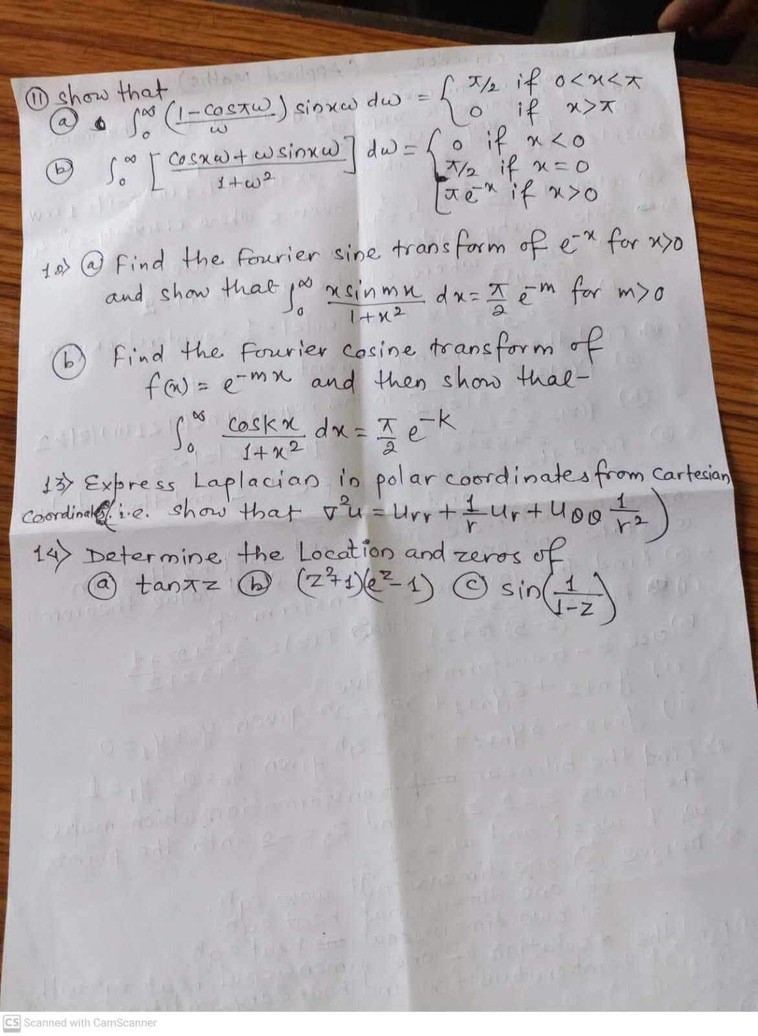 ⑪ show that
ⓐ ∫₀^∞ (1-cosπω / ω) sinxω dω = { π/2 if 0<x<π
0 if x>π
ⓑ ∫₀^∞ [ cosxω + ω sinxω / 1+ω² ] dω = { 0 if x<0
π/2 if x=0
πe^-x if x>0
12> ⓐ Find the Fourier sine transform of e^-x for x>0
and show that ∫₀^∞ x sin mx / 1+x² dx = π/2 e^-m for m>0
ⓑ Find the Fourier cosine transform of
f(x) = e^-mx and then show that-
∫₀^∞ cos kx / 1+x² dx = π/2 e^-k
13> Express Laplacian in polar coordinates from Cartesian
Coordinates(i.e. show that ∇²u = Urr + 1/r Ur + Uθθ 1/r²)
14> Determine the Location and zeros of
ⓐ tanπz ⓑ (z²+1)(e^z-1) ⓒ sin(1/1-z)
CS Scanned with CamScanner